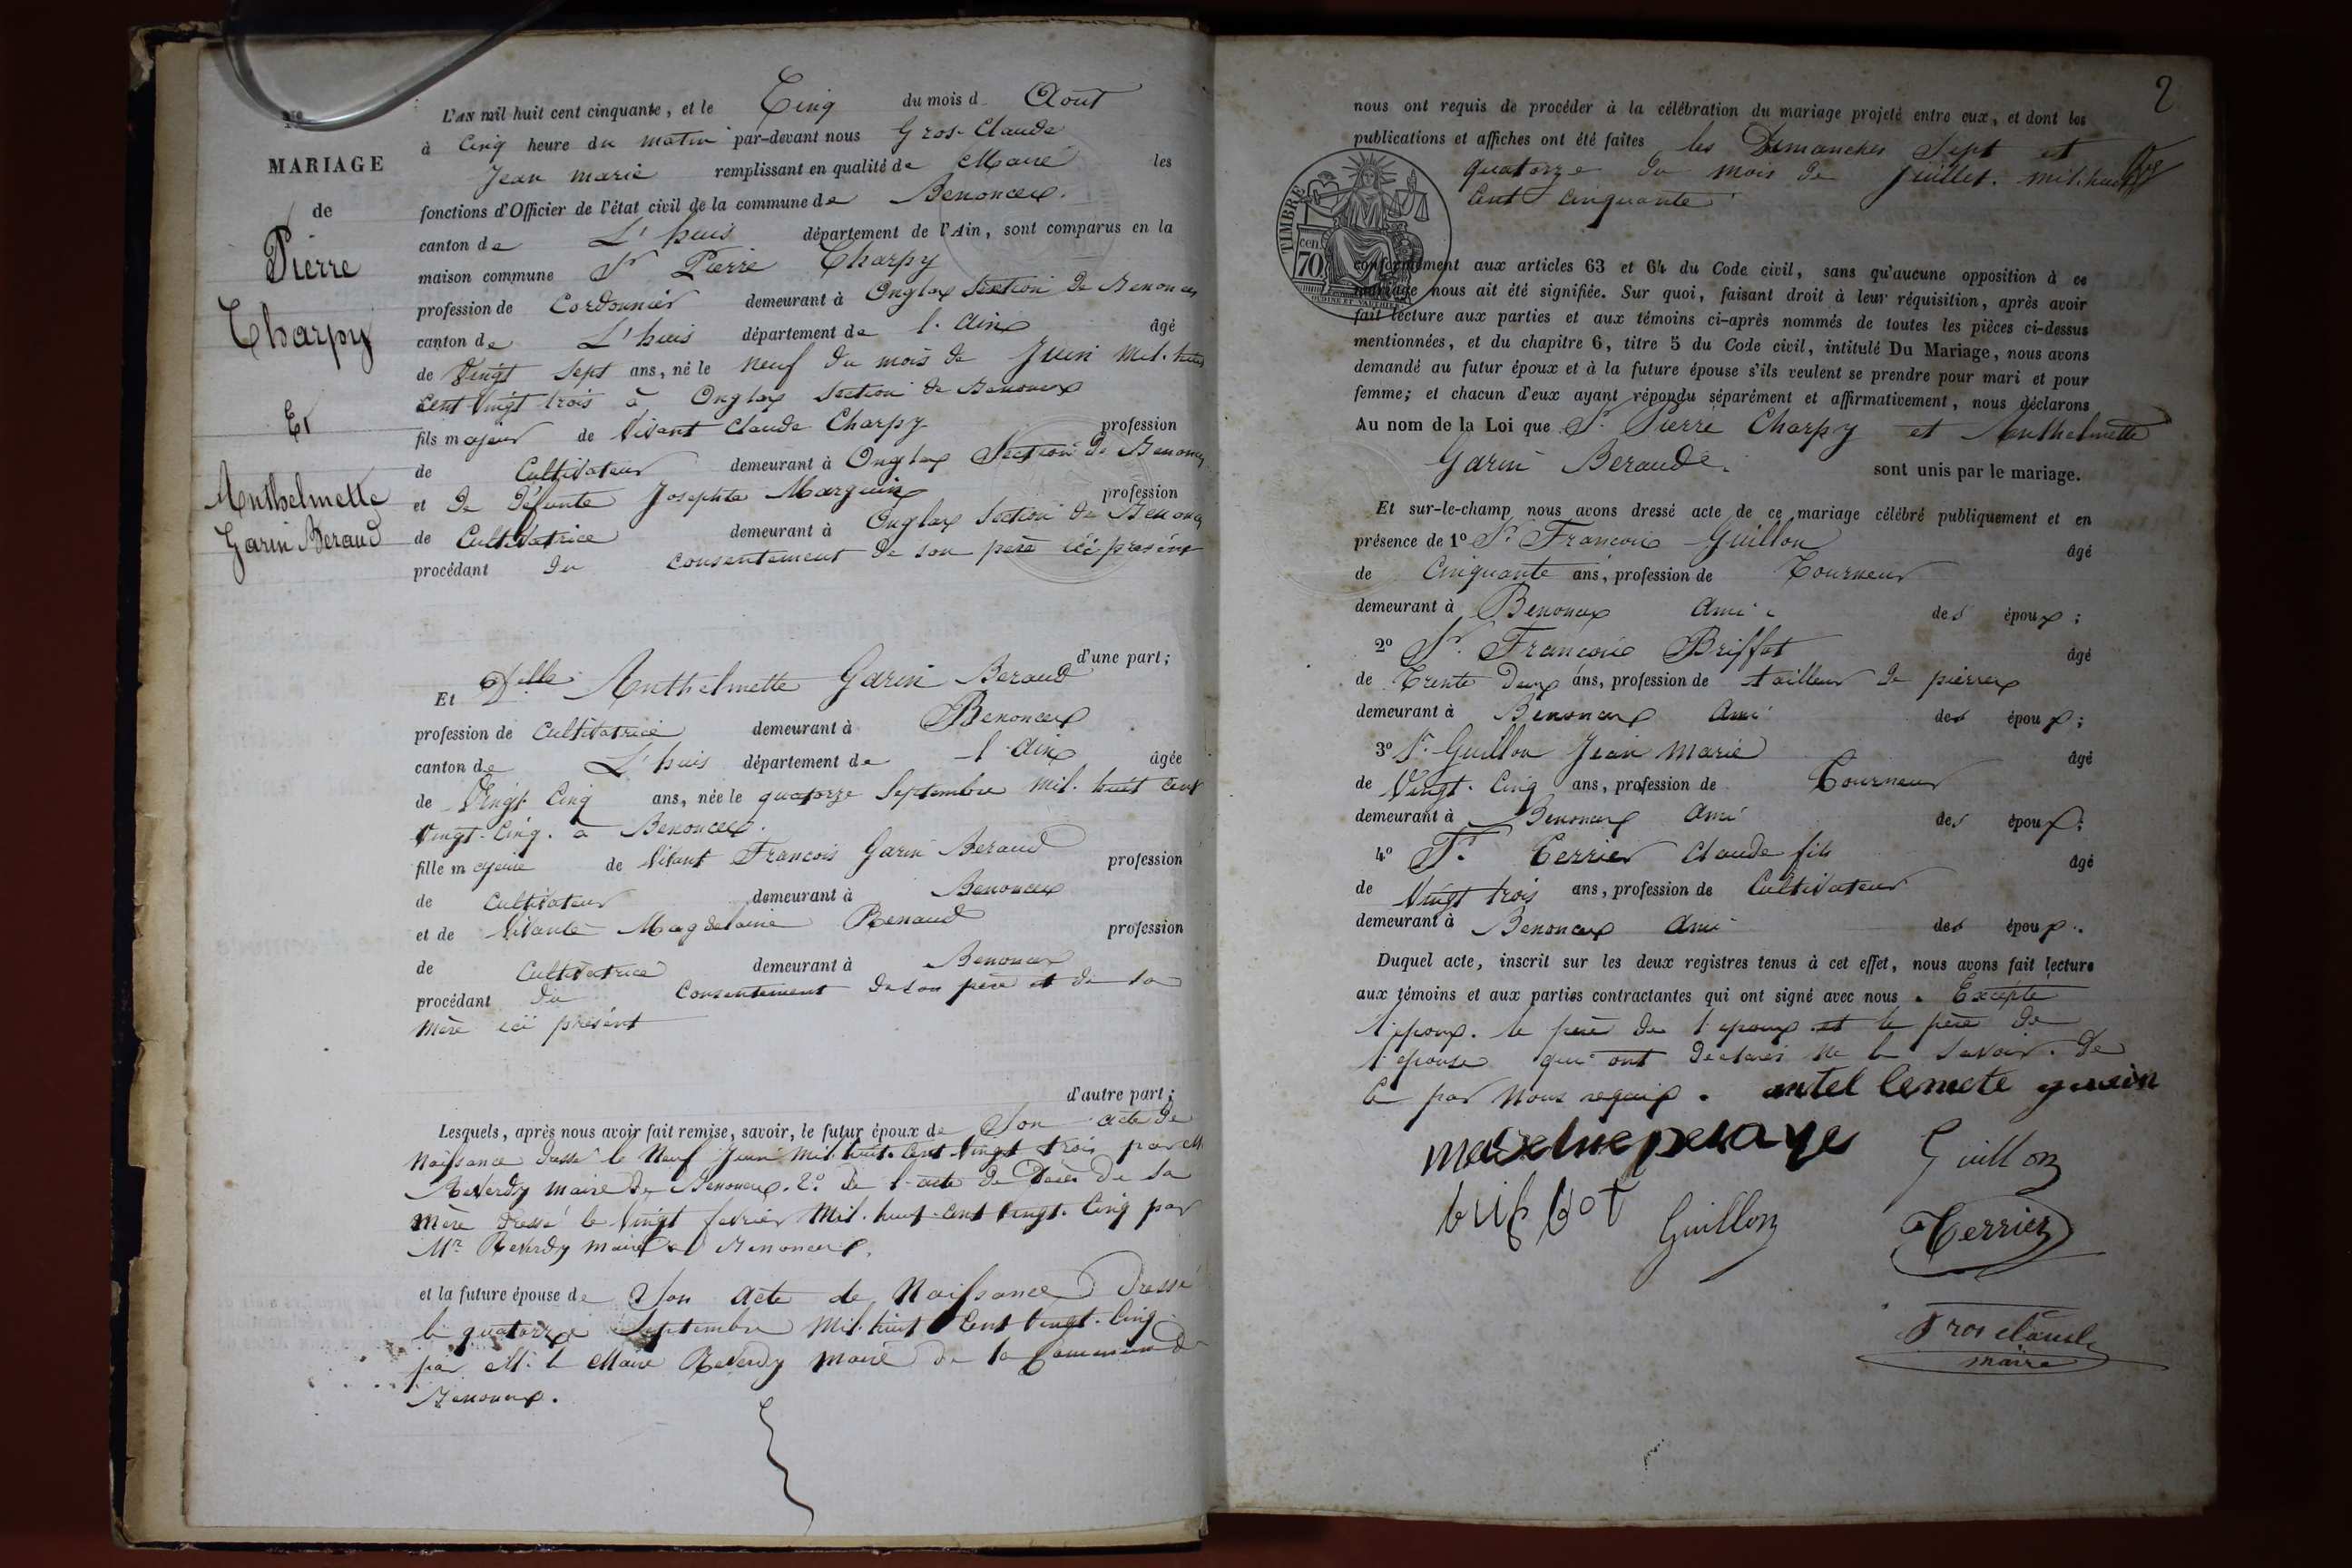 No
MARIAGE
de
Pierre
Charpy
Et
Anthelmette
Garin Beraud
L'an mil huit cent cinquante, et le Cinq du mois d Aout
à Cinq heure du matin par-devant nous Gros-Claude
Jean marie remplissant en qualité de Maire les
fonctions d'Officier de l'état civil de la commune de Benonces.
canton de L'huis département de l'Ain, sont comparus en la
maison commune Sr Pierre Charpy
profession de Cordonnier demeurant à Onglax Section de Benonces
canton de L'huis département de l'Ain âgé
de Vingt Sept ans, né le neuf du mois de Juin mil. huit
Cent Vingt trois à Onglax Section de Benonces
fils majeur de Vivant Claude Charpy profession
de Cultivateur demeurant à Onglax Section de Benonces
et de défunte Josephte Marguin profession
de Cultivatrice demeurant à Onglax Section de Benonces
procédant du consentement de son père ici présent
d'une part;
Et Dlle Anthelmette Garin Beraud
profession de Cultivatrice demeurant à Benonces
canton de L'huis département de l'Ain âgée
de Vingt-Cinq ans, née le quatorze Septembre mil. huit cent
Vingt-Cinq. à Benonces.
fille majeure de Vivant Francois Garin Beraud profession
de Cultivateur demeurant à Benonces
et de Vivante Magdelaine Renaud profession
de Cultivatrice demeurant à Benonces
procédant du Consentement de son père et de sa
mère ici présent
d'autre part;
Lesquels, après nous avoir fait remise, savoir, le futur époux de Son acte de
Naissance dressé le Neuf Juin mil. huit. Cent Vingt trois par M
Reverdy maire de Benonces. 2o de l'acte de Décès de sa
mère dressé le Vingt fevrier Mil. huit-cent Vingt. Cinq par
Mr Reverdy maire de Benonces.
et la future épouse de Son acte de Naissance Dressé
le quatorze Septembre Mil. huit Cent Vingt. Cinq
par Mr le Maire Reverdy maire de la Commune de
Benonces.
2
nous ont requis de procéder à la célébration du mariage projeté entre eux, et dont les
publications et affiches ont été faites les Dimanches Sept et
quatorze du mois de Juillet. mil. huit
Cent cinquante
TIMBRE
70 cen.
OUDINE ET VAUTHIER
conformément aux articles 63 et 64 du Code civil, sans qu'aucune opposition à ce
mariage nous ait été signifiée. Sur quoi, faisant droit à leur réquisition, après avoir
fait lecture aux parties et aux témoins ci-après nommés de toutes les pièces ci-dessus
mentionnées, et du chapitre 6, titre 5 du Code civil, intitulé Du Mariage, nous avons
demandé au futur époux et à la future épouse s'ils veulent se prendre pour mari et pour
femme; et chacun d'eux ayant répondu séparément et affirmativement, nous déclarons
Au nom de la Loi que Sr Pierre Charpy et Anthelmette
Garin Beraude. sont unis par le mariage.
Et sur-le-champ nous avons dressé acte de ce mariage célébré publiquement et en
présence de 1o Sr Francois Guillon âgé
de Cinquante ans, profession de Tourneur
demeurant à Benonces Ami des époux;
2o Sr. Francois Briffot âgé
de Trente Deux ans, profession de tailleur de pierres
demeurant à Benonces Ami des époux;
3o Sr. Guillon Jean Marie âgé
de Vingt. Cinq ans, profession de Tourneur
demeurant à Benonces Ami des époux;
4o Sr. Terrier Claude fils âgé
de Vingt trois ans, profession de Cultivateur
demeurant à Benonces Ami des époux.
Duquel acte, inscrit sur les deux registres tenus à cet effet, nous avons fait lecture
aux témoins et aux parties contractantes qui ont signé avec nous. Excepté
l'epoux. le père de l'epoux et le père de
l'epouse qui ont declarés ne le Savoir. de
Ce par Nous requis. antel lemete garin
Guillon
briffot Guillon Terrier
Gros Claude
maire